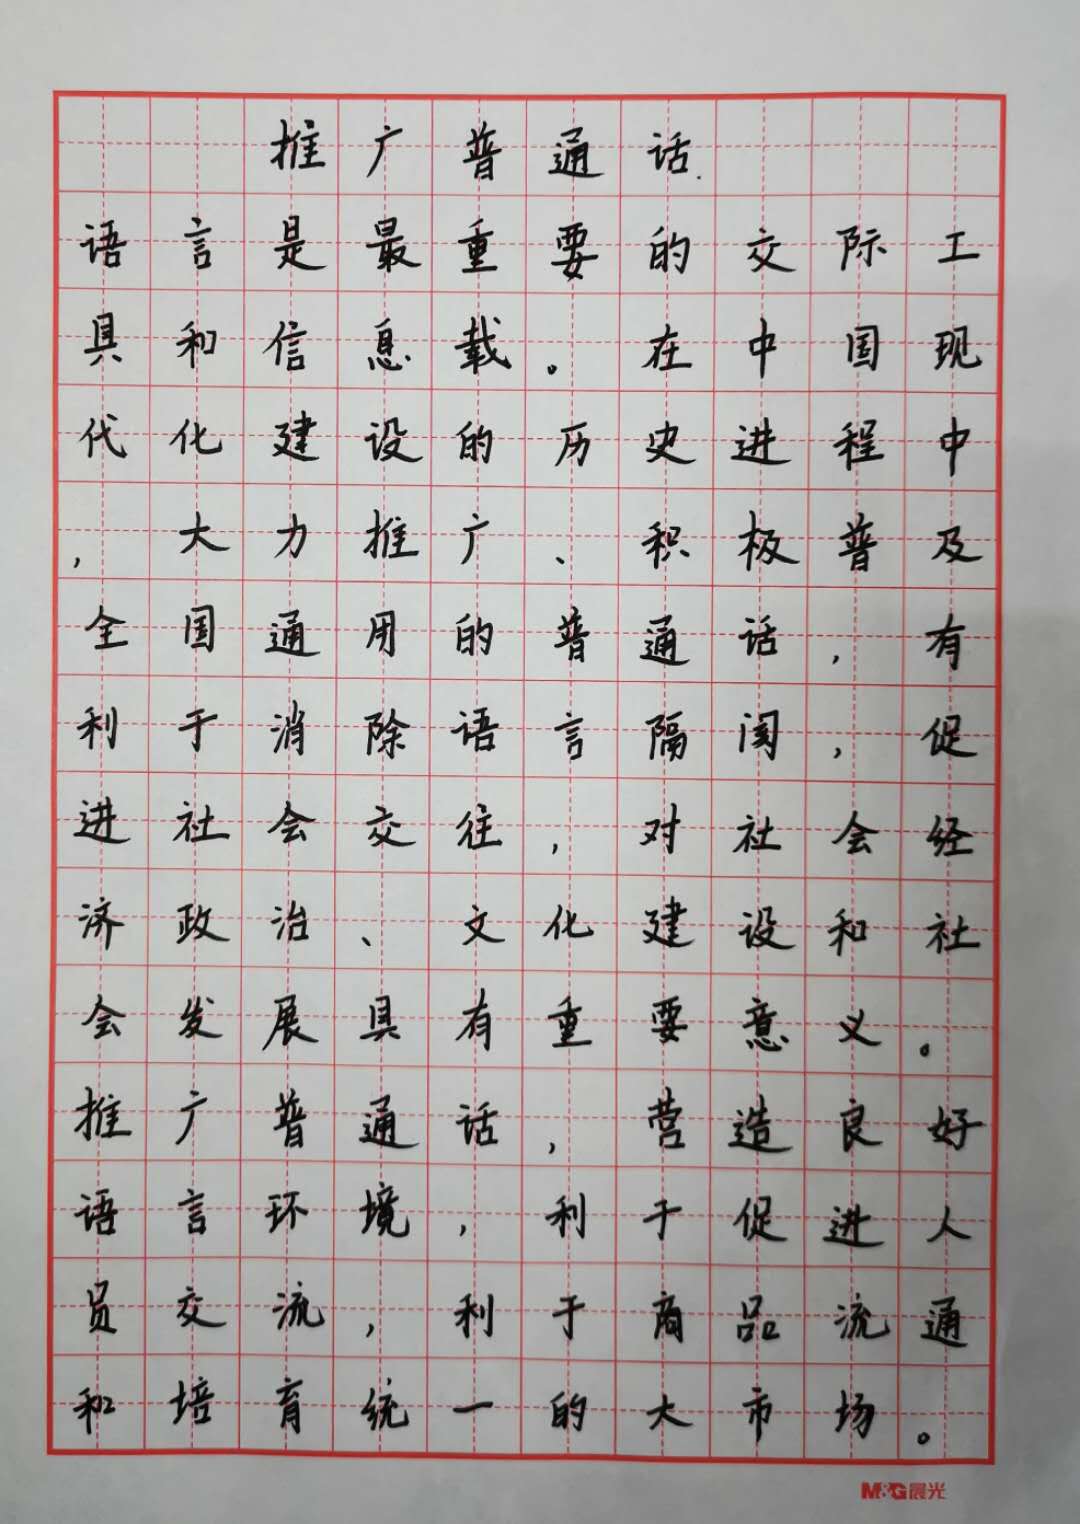 推广普通话.
语言是最重要的交际工
具和信息载。在中国现
代化建设的历史进程中
，大力推广、积极普及
全国通用的普通话，有
利于消除语言隔阂，促
进社会交往，对社会经
济政治、文化建设和社
会发展具有重要意义。
推广普通话，营造良好
语言环境，利于促进人
员交流，利于商品流通
和培育统一的大市场。
M&G晨光